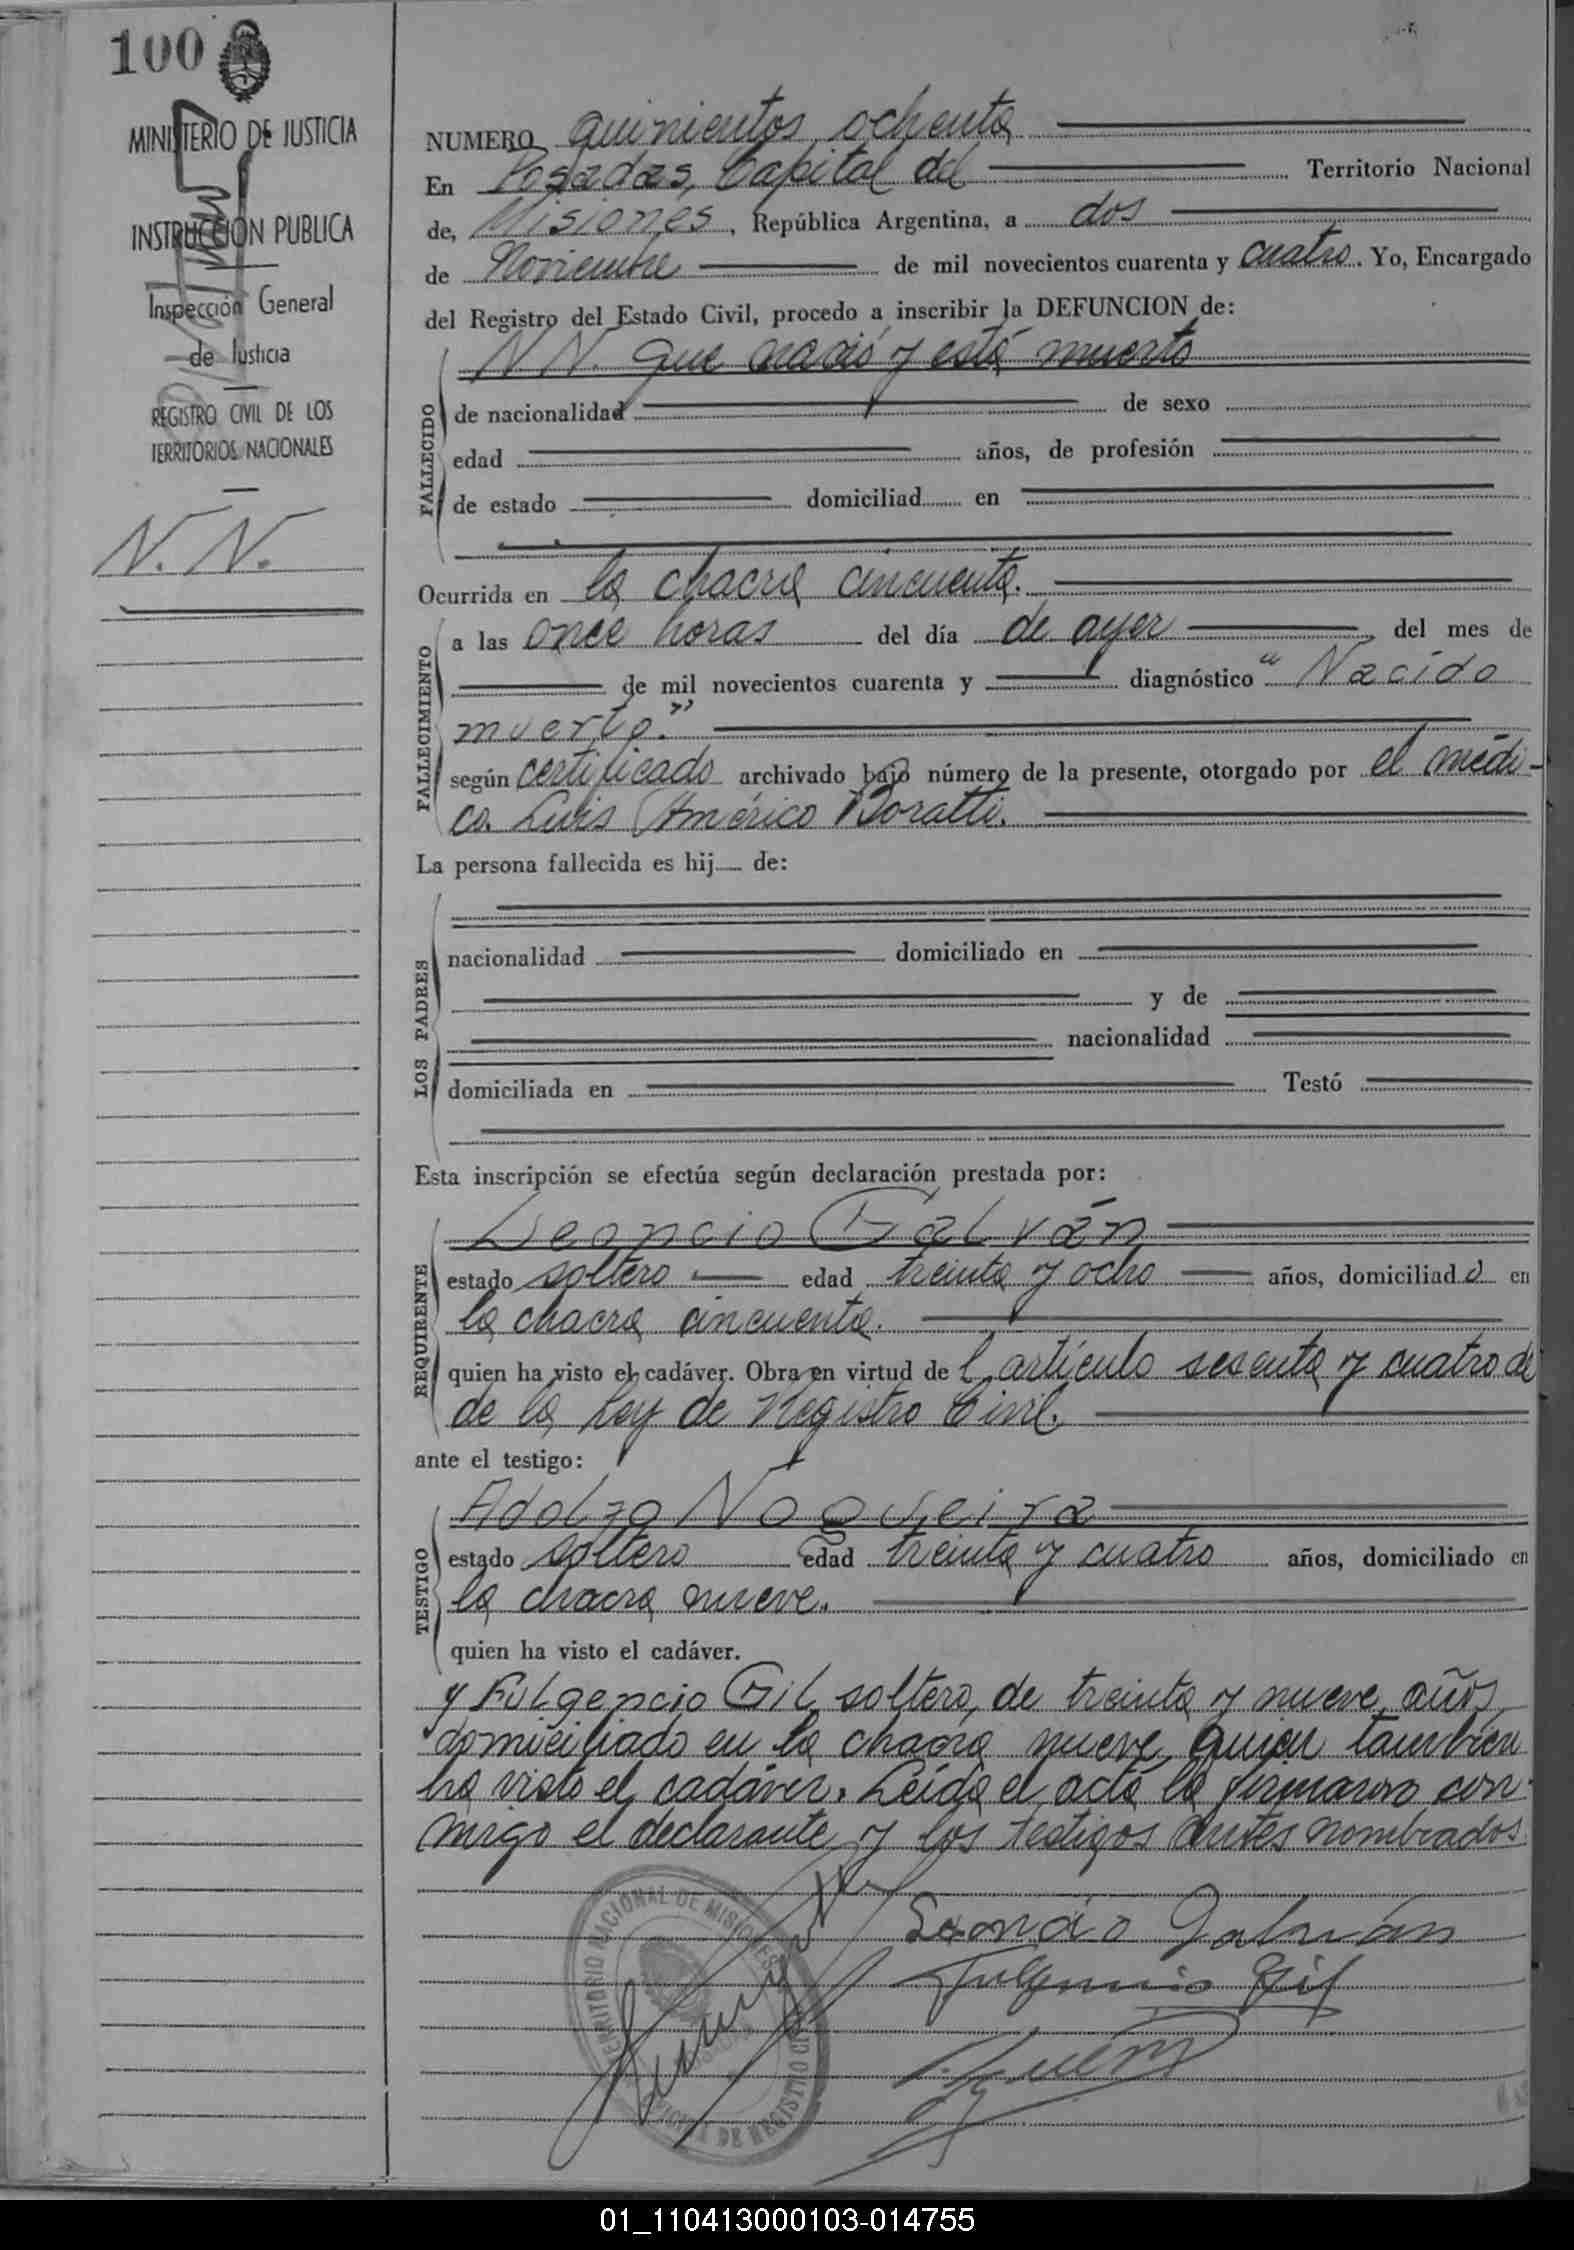 100
MINISTERIO DE JUSTICIA
INSTRUCCIÓN PUBLICA
Inspección General
de Justicia
REGISTRO CIVIL DE LOS
TERRITORIOS NACIONALES
N. N.
NUMERO quinientos ochenta
En Posadas, Capital del Territorio Nacional
de, Misiones, República Argentina, a dos
de Noviembre de mil novecientos cuarenta y cuatro. Yo, Encargado
del Registro del Estado Civil, procedo a inscribir la DEFUNCION de:
FALLECIDO
N. N. que nació y está muerto
de nacionalidad de sexo
edad años, de profesión
de estado domiciliad en
Ocurrida en la chacra cincuenta.
FALLECIMIENTO
a las once horas del día de ayer, del mes de
de mil novecientos cuarenta y diagnóstico "Nacido
muerto."
según certificado archivado bajo número de la presente, otorgado por el médi-
co. Luis Américo Boratti.
La persona fallecida es hij de:
LOS PADRES
nacionalidad domiciliado en
y de
nacionalidad
domiciliada en Testó
Esta inscripción se efectúa según declaración prestada por:
REQUIRENTE
Leoncio Galván
estado soltero edad treinta y ocho años, domiciliado en
la chacra cincuenta.
quien ha visto el cadáver. Obra en virtud del artículo sesenta y cuatro de
de la Ley de Registro Civil.
ante el testigo:
TESTIGO
Adolfo Nogueira
estado soltero edad treinta y cuatro años, domiciliado en
la chacra nueve.
quien ha visto el cadáver.
y Fulgencio Gil, soltero, de treinta y nueve años,
domiciliado en la chacra nueve, quien también
ha visto el cadáver. Leída el acta la firmaron con-
migo el declarante y los testigos antes nombrados.
TERRITORIO NACIONAL DE MISIONES
OFICINA DE REGISTRO CIVIL
Leoncio Galván
Fulgencio Gil
01_110413000103-014755